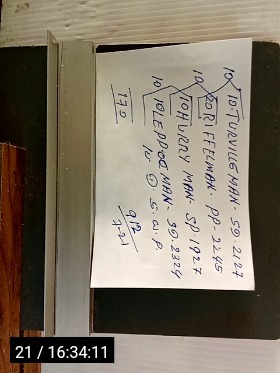 10 10-TURVILLE MAN - SD. 2127
10 20 RIFFELMAN - PP - 2245
10 HURRY MAN - SP. 1927
10 10 LEPPOC MAN - SD. 2324
10 ① S.W.P.
170
21 / 16:34:11